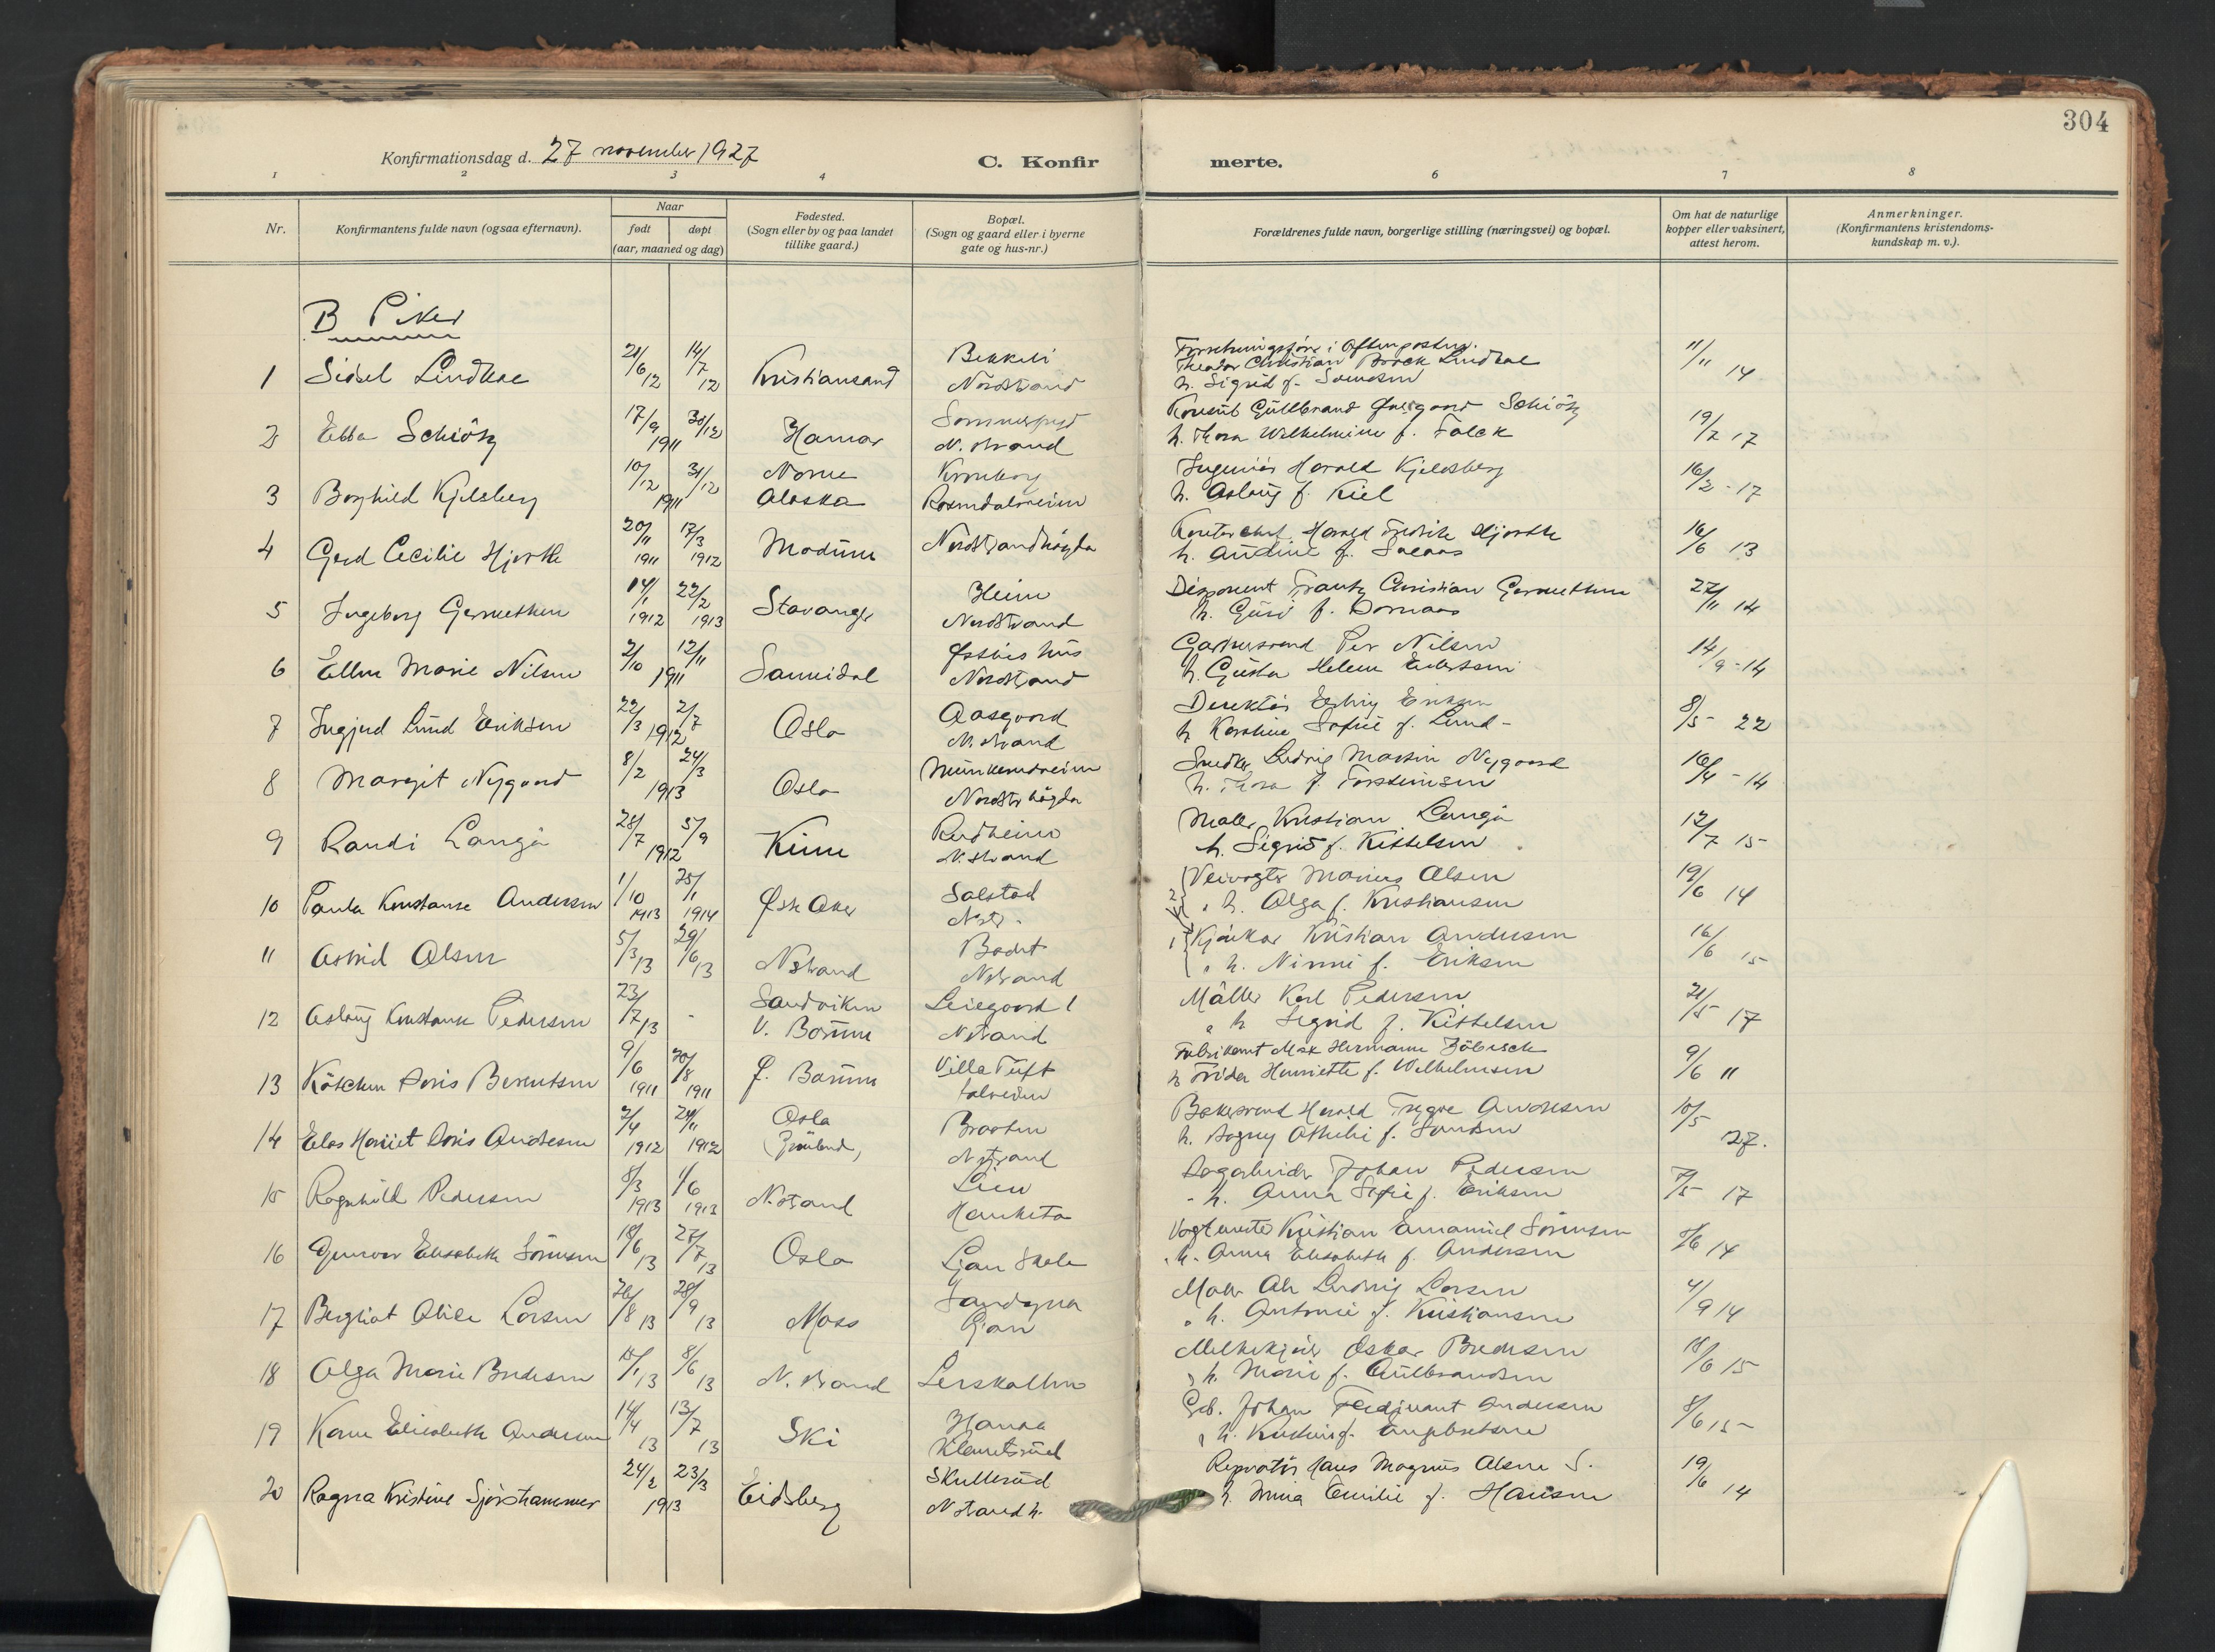 304
Konfirmationsdag d. 27 november 1927
C. Konfir
merte.
1 2 3 4 6 7 8
Nr.
Konfirmantens fulde navn (ogsaa efternavn).
Naar
født
døpt
(aar, maaned og dag)
Fødested.
(Sogn eller by og paa landet
tillike gaard.)
Bopæl.
(Sogn og gaard eller i byerne
gate og hus-nr.)
Forældrenes fulde navn, borgerlige stilling (næringsvei) og bopæl.
Om hat de naturlige
kopper eller vaksinert,
attest herom.
Anmerkninger.
(Konfirmantens kristendoms-
kundskap m. v.).
B Piker
1 Sidsel Lindboe 21/6 12 14/7 12 Kristiansand
Bekkeli
Nordstrand
Forretningsfører i Aftenposten.
Theodor Christian Brock Lindboe
h. Sigrid f.
11/11 14
2 Ebba Schiötz 17/9 30/12 1911 Hamar
N. strand
Konsul Gulbrand Schiötz
h. Thora Wilhelmine f. Falck
19/2 17
3 Borghild Kjelsberg 10/12 31/12 1911
Nome
Alaska
Kroneborg
Rosendalsveien
Ingeniör Harald Kjeldsberg
h. Aslaug f. Kiel
16/2 - 17
4 Gerd Cecilie Hjorth 20/11 1911 17/3 1912 Modum Nordstrandhögda
Kontorchef Harald Fredrik Hjorth
h. Andine f.
16/6 13
5 Ingeborg Germeten 14/1 1912 22/2 1913 Stavanger
Heim
Nordstrand
Disponent Frantz Christian Germeten
h. Guri f. Dornaas
27/11 14
6 Ellen Marie Nilsen 2/10 12/11 1911 Sannidal
Nordstrand
Garversvend Per Nilsen
h. Gusta Helene
14/9 - 14
7 Ingjerd Lund Eriksen 22/3 2/7 1912 Oslo
Aasgaard
N. strand
Direktör Eriksen
h Karoline Sofie f. Lund -
8/5 - 22
8 Margit Nygaard 8/2 24/3 1913 Oslo
Munkerudveien
Nordstr högda
Snedker Ludvig Martin Nygaard
h. Thora f. Torsteinsen
16/4 - 14
9 Randi Langå 28/7 5/9 1912
Rudheim
N. strand
Maler Kristian Langå
h. Sigrid f. Kittelsen
12/7 15
10 Paula Konstanse Andersen 1/10 1913 25/1 1914 Østr Aker
Solstad
Nstr.
Veivogter Marius Olsen
" h. Olga f. Kristiansen
19/6 14
11 Astrid Olsen 5/3 13 29/6 13 N strand
N strand
Kjörekar Kristian Andersen
" h. Ninni f. Eriksen
16/6 15
12 Aslaug Konstanse Pedersen 23/7 13 -
Sandviken
V. Bærum
Leiegaard 1
N strand
Måller Karl Pedersen
" h Sigrid f. Kittelsen
21/5 17
13 Kätchen Doris Berentsen 9/6 1911 20/8 1911 Ø. Bærum
Villa Tuft
Fabrikant Max Hermann Zöbisch
h Frida Henriette f. Wilhelmsen
9/6 11
14 Elas Harriet Doris Andresen 2/4 1912 24/11 1912
Oslo
(Grönland)
Braaten
N strand
Bakersvend Harald Trygve Andresen
h. Dagny Othilie f.
10/5 27.
15 Ragnhild Pedersen 8/3 1913 1/6 1913 N. strand
Lien
Hauketo
Dagarbeider Johan Pedersen
- h. Anna Sofie f. Eriksen
7/5 17
16 Gunvor Elisabeth Sörensen 18/6 13 27/7 13 Oslo
Ljan Skole
Vogtmester Kristian Emanuel Sörensen
" h. Anna Elisabeth f. Andersen
8/6 14
17 Bergliot Alise Larsen 26/8 13 28/9 13 Moss
Ljan
Maler Ole Ludvig Larsen
" h. Antonie f. Kristiansen
4/9 14
18 Olga Marie Bredesen 15/1 13 8/6 13 N. strand Lerskallen
Melkekjörer Oskar Bredesen
" h. Marie f. Gulbrandsen
18/6 15
19 Karen Elisabeth Andersen 14/4 13 13/7 13 Ski
Klemetsrud
Johan Ferdinant Andersen
" h. f. Engebretsen
8/6 15 -
20 Ragna Kristine Sjöstrammer 24/2 23/3 1913 Eidsberg
Skullerud
N strand h.
Reparatör Hans Magnus Olsen S.
h. Anna Emilie f. Hansen
19/6 14